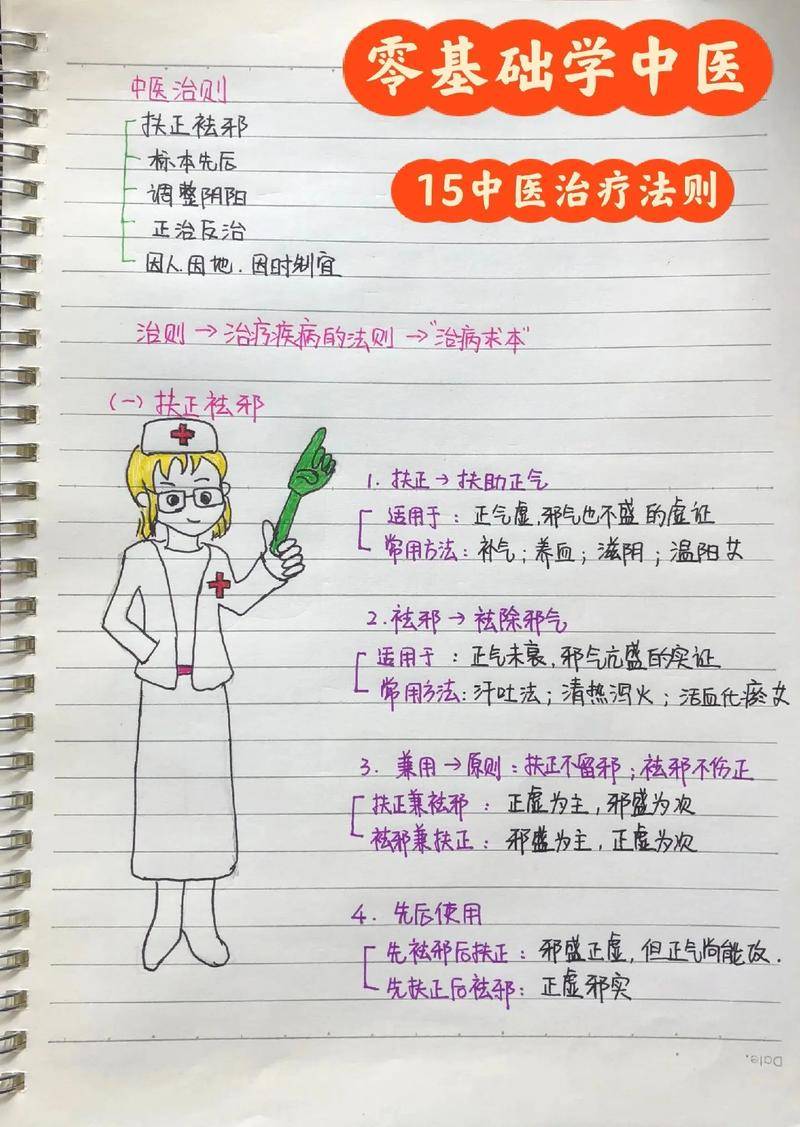 零基础学中医
15中医治疗法则
中医治则
扶正祛邪
标本先后
调整阴阳
正治反治
因人.因地.因时制宜
治则→治疗疾病的法则→"治病求本"
(一)扶正祛邪
1. 扶正→扶助正气
适用于：正气虚,邪气也不盛的虚证
常用方法：补气；养血；滋阴；温阳
2.祛邪→祛除邪气
适用于：正气未衰,邪气亢盛的实证
常用方法：汗吐法；清热泻火；活血化瘀
3. 兼用→原则：扶正不留邪；祛邪不伤正
扶正兼祛邪：正虚为主，邪盛为次
祛邪兼扶正：邪盛为主，正虚为次
4. 先后使用
先祛邪后扶正：邪盛正虚，但正气尚能攻.
先扶正后祛邪：正虚邪实
Date.